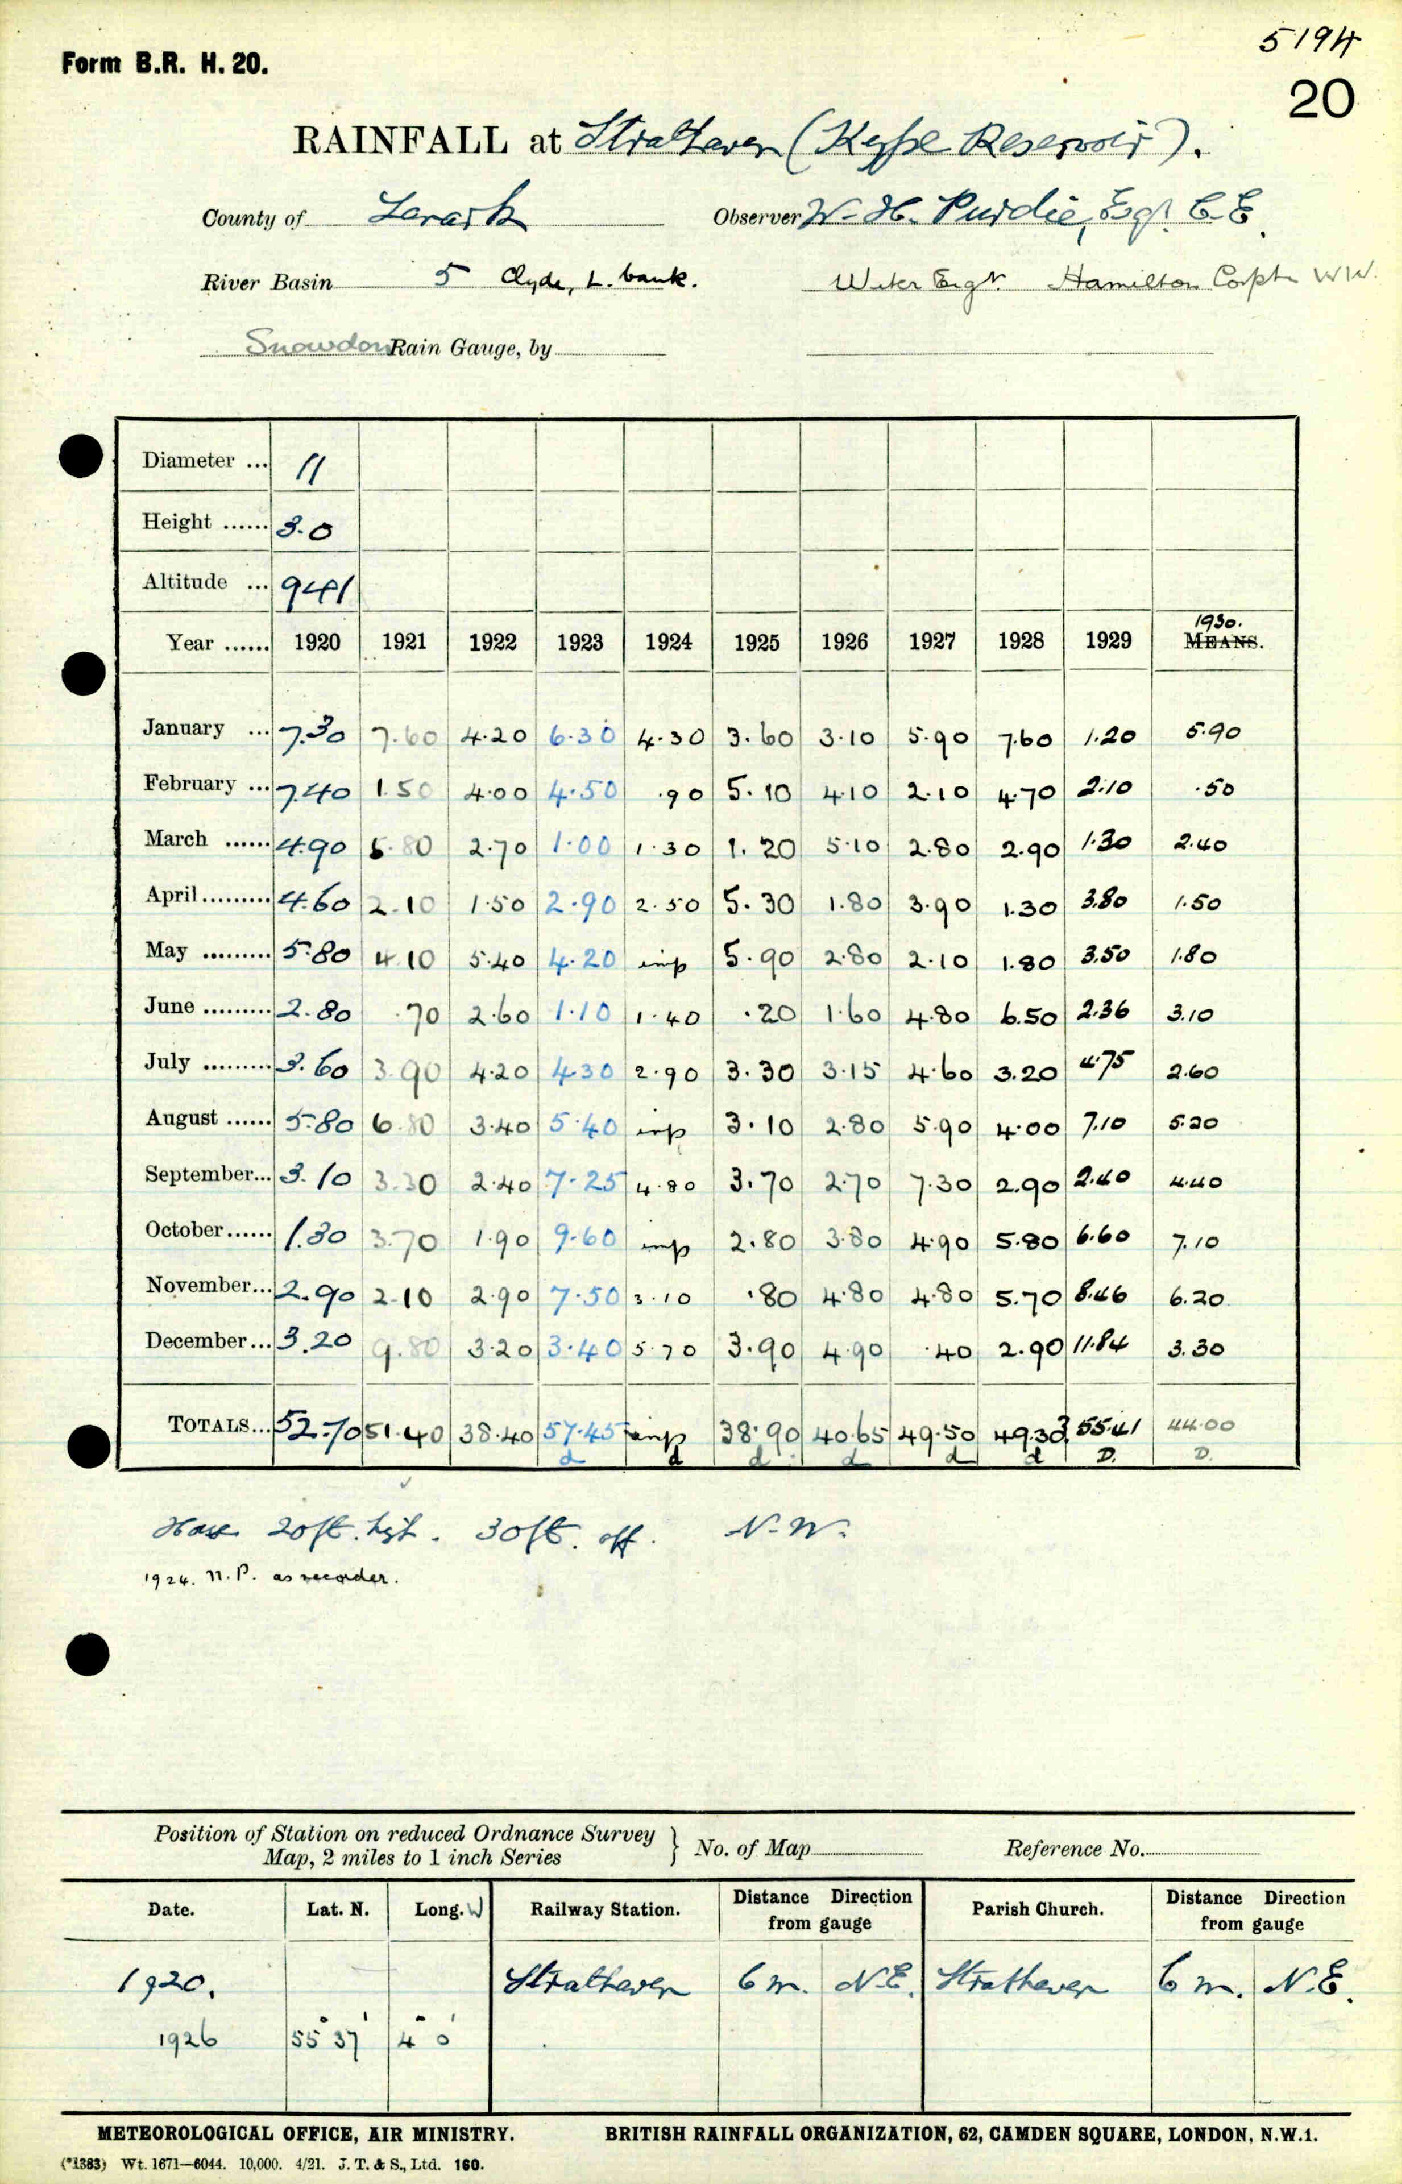 5194
Form B.R. H. 20.
20
RAINFALL at Strathaven (Kype Reservoir).
County of Lanark Observer W. H. Purdie, Esqr. C.E.
River Basin 5 Clyde, L. bank. Water Engr. Hamilton Corptn W.W.
Snowdon Rain Gauge, by
Diameter ... 11
Height ...... 3.0
Altitude ... 941
1930.
Year ...... 1920 1921 1922 1923 1924 1925 1926 1927 1928 1929 MEANS.
January ... 7.30 7.60 4.20 6.30 4.30 3.60 3.10 5.90 7.60 1.20 5.90
February ... 7.40 1.50 4.00 4.50 .90 5.10 4.10 2.10 4.70 2.10 .50
March ...... 4.90 5.80 2.70 1.00 1.30 1.20 5.10 2.80 2.90 1.30 2.40
April ......... 4.60 2.10 1.50 2.90 2.50 5.30 1.80 3.90 1.30 3.80 1.50
May ......... 5.80 4.10 5.40 4.20 imp 5.90 2.80 2.10 1.80 3.50 1.80
June ......... 2.80 .70 2.60 1.10 1.40 .20 1.60 4.80 6.50 2.36 3.10
July ......... 3.60 3.90 4.20 4.30 2.90 3.30 3.15 4.60 3.20 4.75 2.60
August ...... 5.80 6.80 3.40 5.40 imp 3.10 2.80 5.90 4.00 7.10 5.20
September... 3.10 3.30 2.40 7.25 4.80 3.70 2.70 7.30 2.90 2.40 4.40
October...... 1.30 3.70 1.90 9.60 imp 2.80 3.80 4.90 5.80 6.60 7.10
November... 2.90 2.10 2.90 7.50 3.10 .80 4.80 4.80 5.70 8.46 6.20
December... 3.20 9.80 3.20 3.40 5.70 3.90 4.90 .40 2.90 11.84 3.30
TOTALS... 52.70 51.40 38.40 57.45 imp 38.90 40.65 49.50 49.30 55.41 44.00
d d d d d d D. D.
20ft. hgt. 30ft. off. N.W.
1924. N.P. as recorder.
Position of Station on reduced Ordnance Survey
Map, 2 miles to 1 inch Series } No. of Map Reference No.
Date. Lat. N. Long. W Railway Station. Distance Direction from gauge Parish Church. Distance Direction from gauge
1920. Strathaven 6 m. N.E. Strathaven 6 m. N.E.
1926 55° 37' 4° 0'
METEOROLOGICAL OFFICE, AIR MINISTRY. BRITISH RAINFALL ORGANIZATION, 62, CAMDEN SQUARE, LONDON, N.W.1.
(*1383) Wt. 1671—6044. 10,000. 4/21. J. T. & S., Ltd. 160.